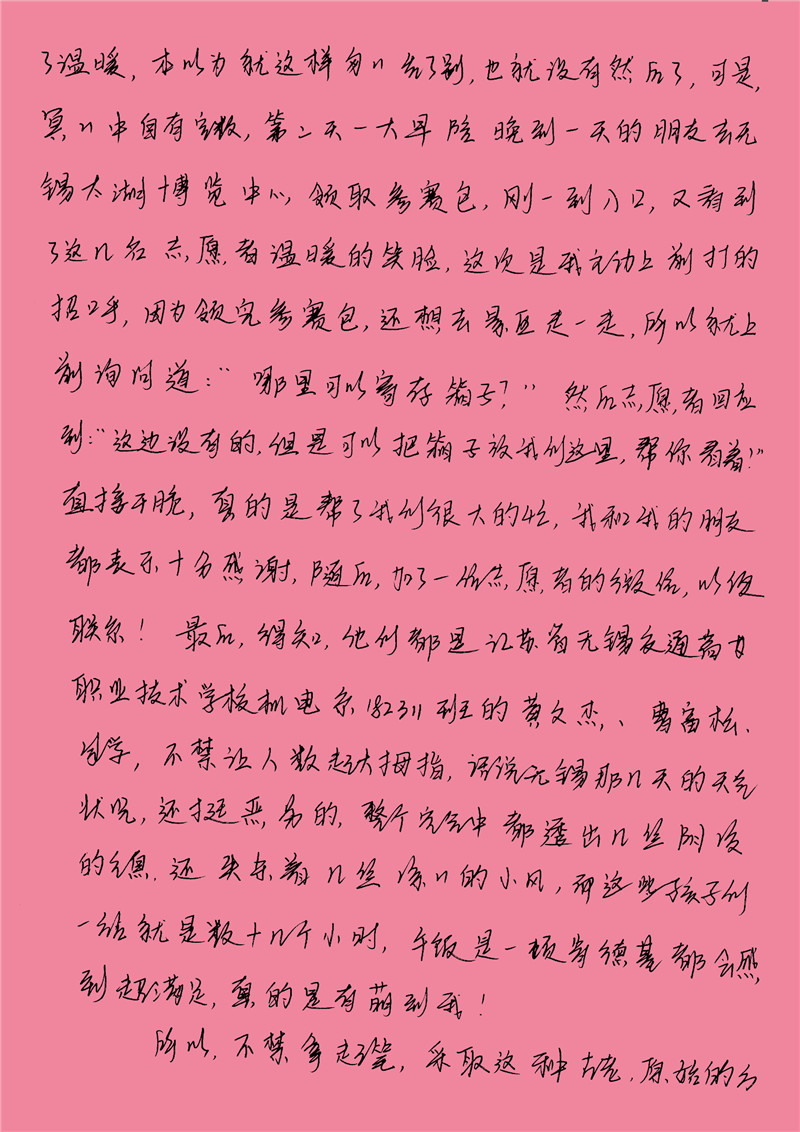 了温暖，本以为就这样匆〃告了别，也就没有然后了，可是，
冥〃中自有定数，第二天一大早陪晚到一天的朋友去无
锡太湖博览中心领取参赛包，刚一到入口，又看到
了这几名志愿者温暖的笑脸，这次是我主动上前打的
招呼，因为领完参赛包，还想去景区走一走，所以就上
前询问道：“哪里可以寄存箱子？”然后志愿者回应
到：“这边没有的，但是可以把箱子放我们这里，帮你看着！”
直接干脆，真的是帮了我们很大的忙，我和我的朋友
都表示十分感谢，随后，加了一位志愿者的微信，以便
联系！最后，得知，他们都是江苏省无锡交通高等
职业技术学校机电系182311班的黄文杰、曹富松、
同学，不禁让人数起大拇指，话说无锡那几天的天气
状况，还挺恶劣的，整个空气中都透出几丝阴凌
的，还夹杂着几丝凉〃的小风，而这些孩子们
一站就是数十几个小时，午饭是一顿肯德基都会感
到超满足，真的是有萌到我！
所以，不禁拿起笔，采取这种古老、原始的方